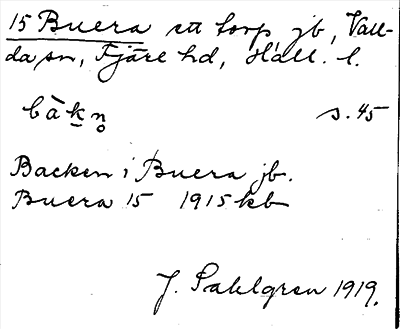 15 Buera ett torp jb, Vall-
da sn, Fjäre hd, Hall. l.
bàkn̥ s. 45
Backen i Buera jb.
Buera 15 1915 kb
J. Sahlgren 1919.